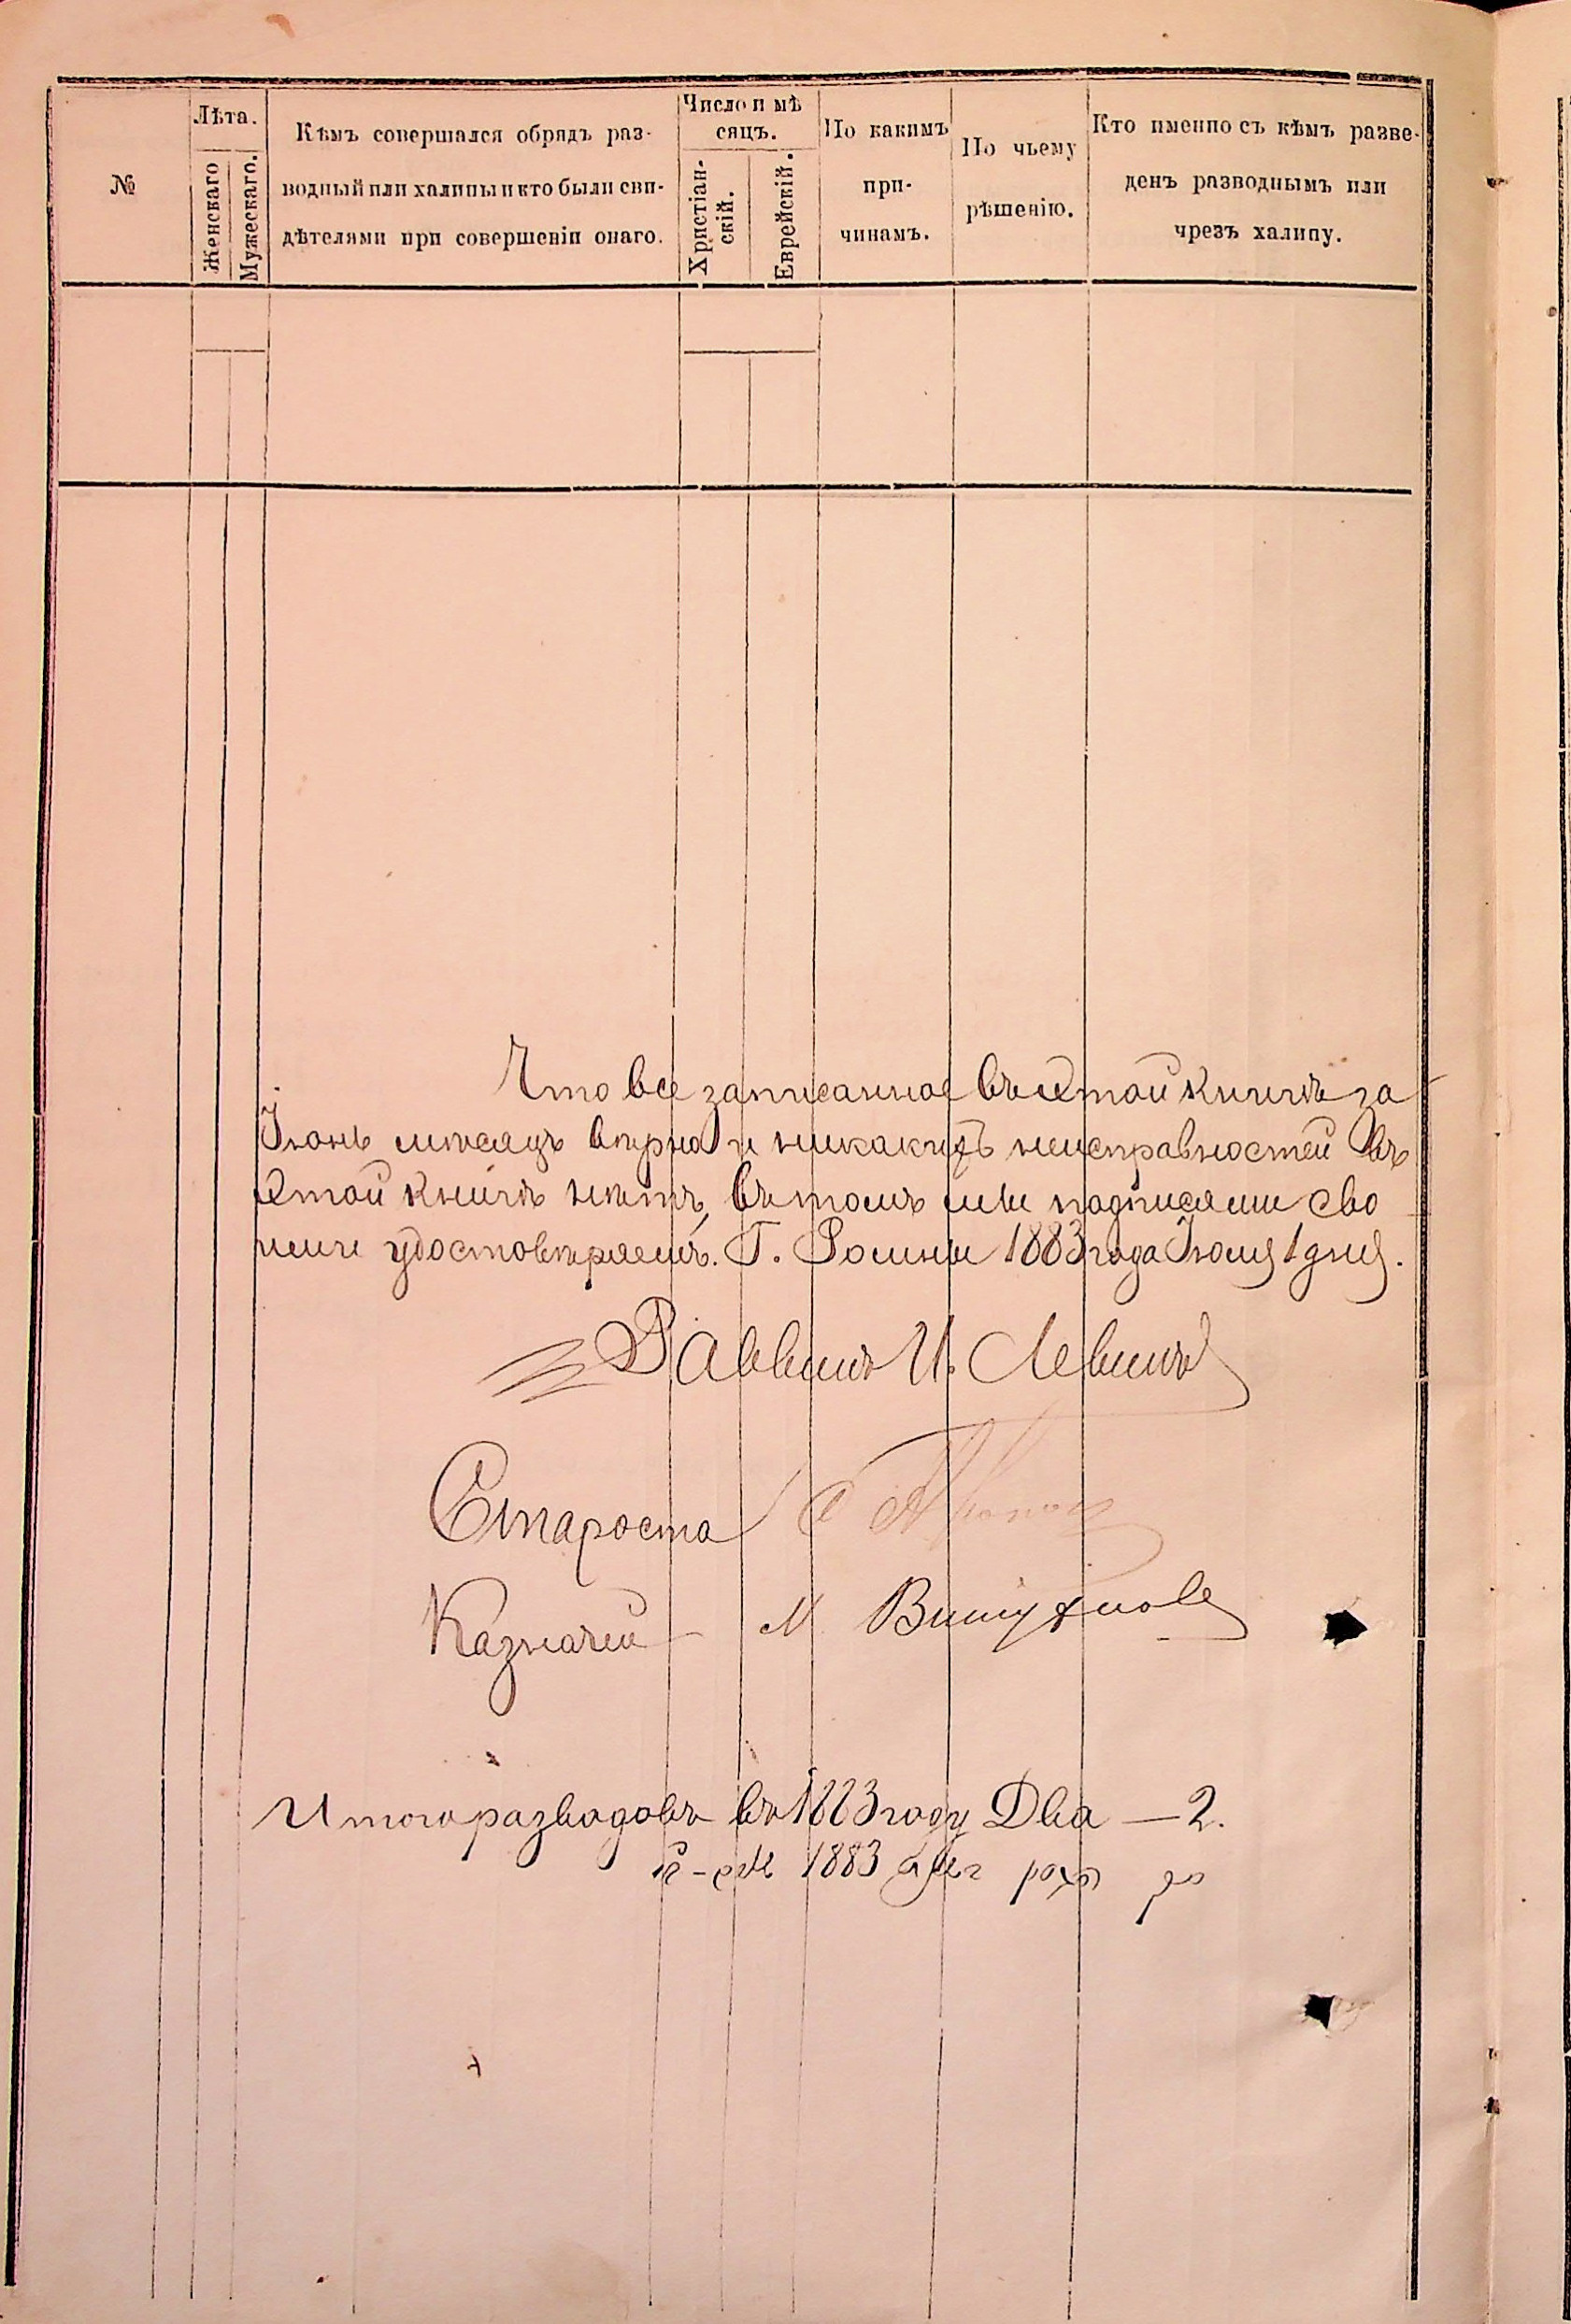 №
Лѣта.
Женскаго
Мужескаго.
Кѣмъ совершался обрядъ раз-
водный или халицы и кто были сви-
дѣтелями при совершеніи онаго.
Число и мѣ
сяцъ.
Христіан-
скій.
Еврейскій.
По какимъ
при-
чинамъ.
По чьему
рѣшенію.
Кто именно съ кѣмъ разве-
денъ разводнымъ или
чрезъ халицу.
Что все записанное въ этой книгѣ за
Іюнь мѣсяцъ вѣрно и никакихъ неисправностей въ
этой книгѣ нѣтъ, въ томъ мы подписями сво
ими удостовѣряемъ. Г. Ромны 1883 года Іюля 1 дня.
Раввинъ И. Левинъ
Староста
Казначей М
Итого разводовъ въ 1883 году Два — 2.
1883